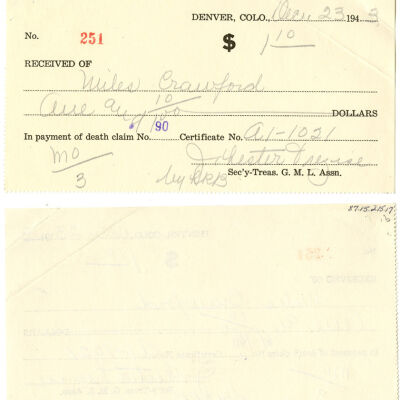 DENVER, COLO., Dec. 23 1943
No. 251 $ 1 10
RECEIVED OF
Miles Crawford
One and 10/100 DOLLARS
In payment of death claim No. 90 Certificate No. A1-1021
MO J. Chester
3 by Sec'y-Treas. G. M. L. Assn.
87.15.215.17